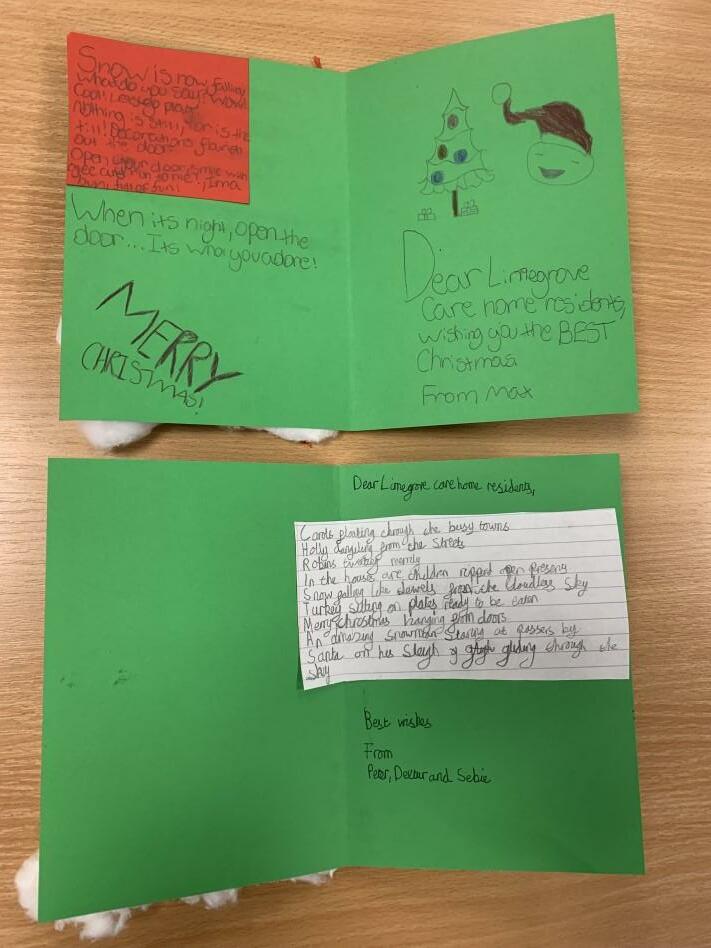 Snow is now falling
what do you say? Wow!
Cool! Lets go play
Nothing is still, nor is the
till! Decorations flourish
out the door
Open your door, smile with
glee and run to me!, I'm a
full of fun!
When its night, open the
door... Its what you adore!
MERRY
CHRISTMAS!
Dear Limegrove
Care home residents,
wishing you the BEST
Christmas
From Max
Dear Limegrove care home residents,
Carols floating through the busy towns
Holly dangling from the streets
Robins tweeting merrily
In the houses are children ripped open presents
Snow falling like Jewels from the Cloudless Sky
Turkey sitting on plates ready to be eaten
Merry christmas hanging from doors
An amazing snowman staring at passers by
Santa on his sleigh gliding through the
sky
Best wishes
From
Peter, and Sebie